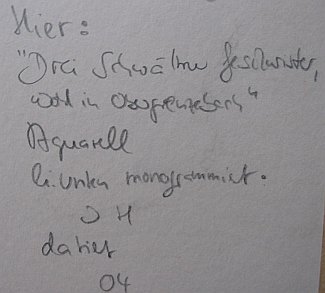 Hier:
"Drei Schwälmer Geschwister,
wohl in Obergrenzebach"
Aquarell
li. unten monogrammiert.
J H
datiert
04